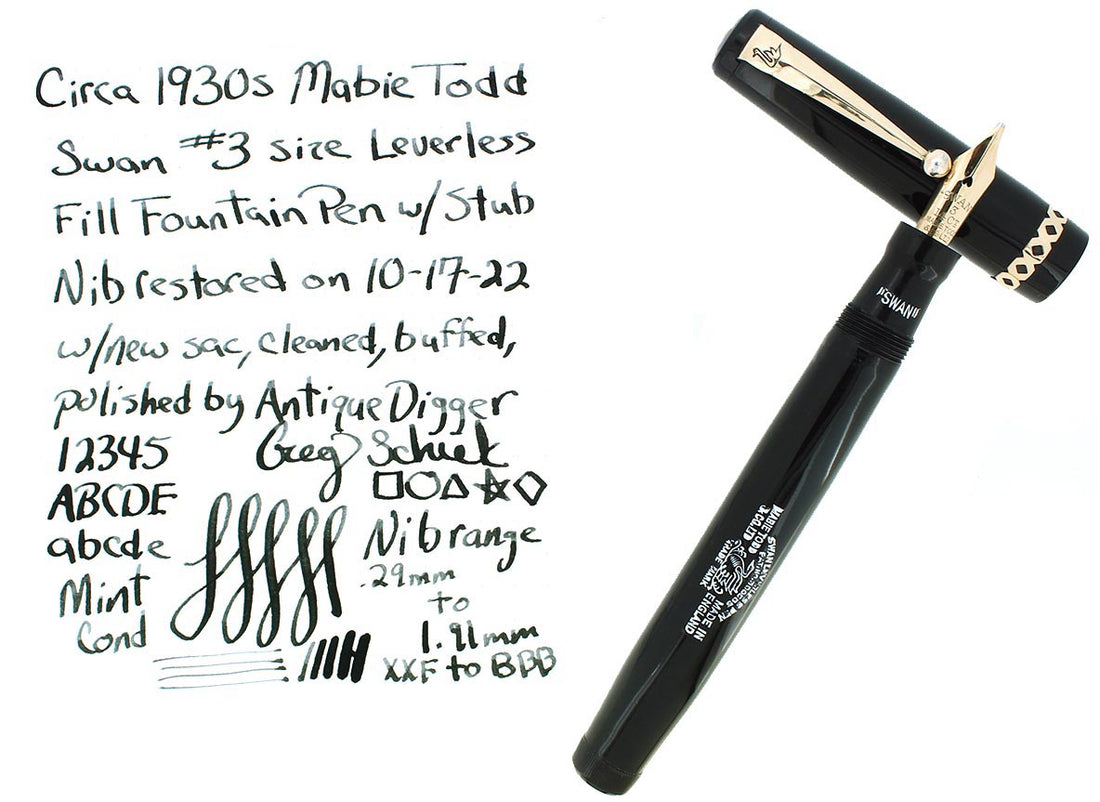 Circa 1930s Mabie Todd
Swan #3 size Leverless
Fill Fountain Pen w/Stub
Nib restored on 10-17-22
w/new sac, cleaned, buffed,
polished by Antique Digger
Greg
12345
ABCDE
abcde
Mint
Cond
Nib range
.29mm
to
1.91mm
XXF to BBB
"SWAN"
MABIE TODD
& CO. LTD
TRADE MARK
MADE IN
ENGLAND